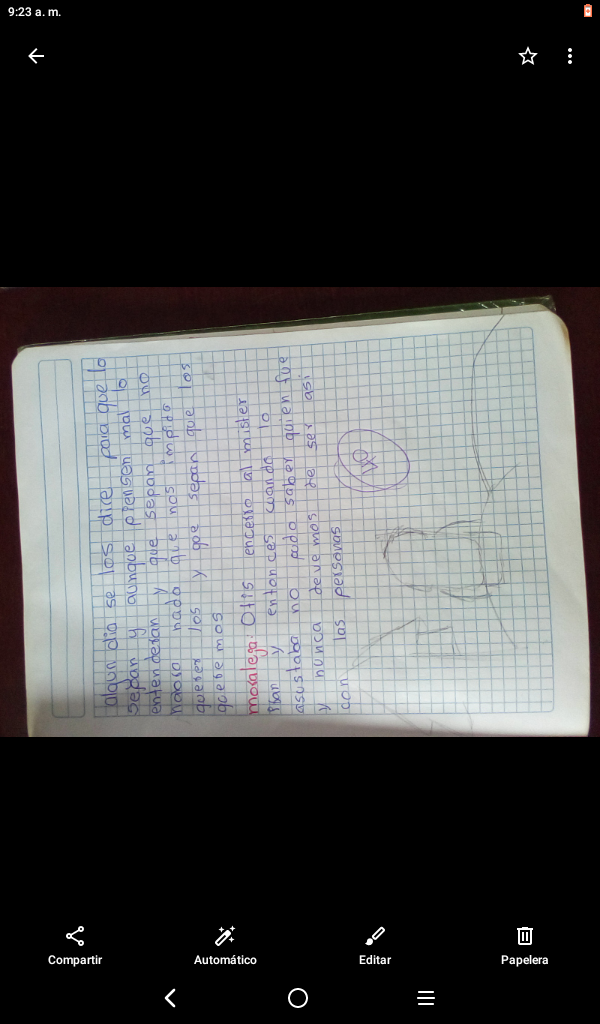 9:23 a. m.
algun dia se los dire para que lo
sepan y aunque piensen mal lo
entenderan y que sepan que no
nada que nos impida
querer los y que sepan que los
queremos
moraleja: Otis encerro al mister
y entonces cuando lo
asustaba no pudo saber quien fue
y nunca devemos de ser asi
con las personas
Compartir
Automático
Editar
Papelera